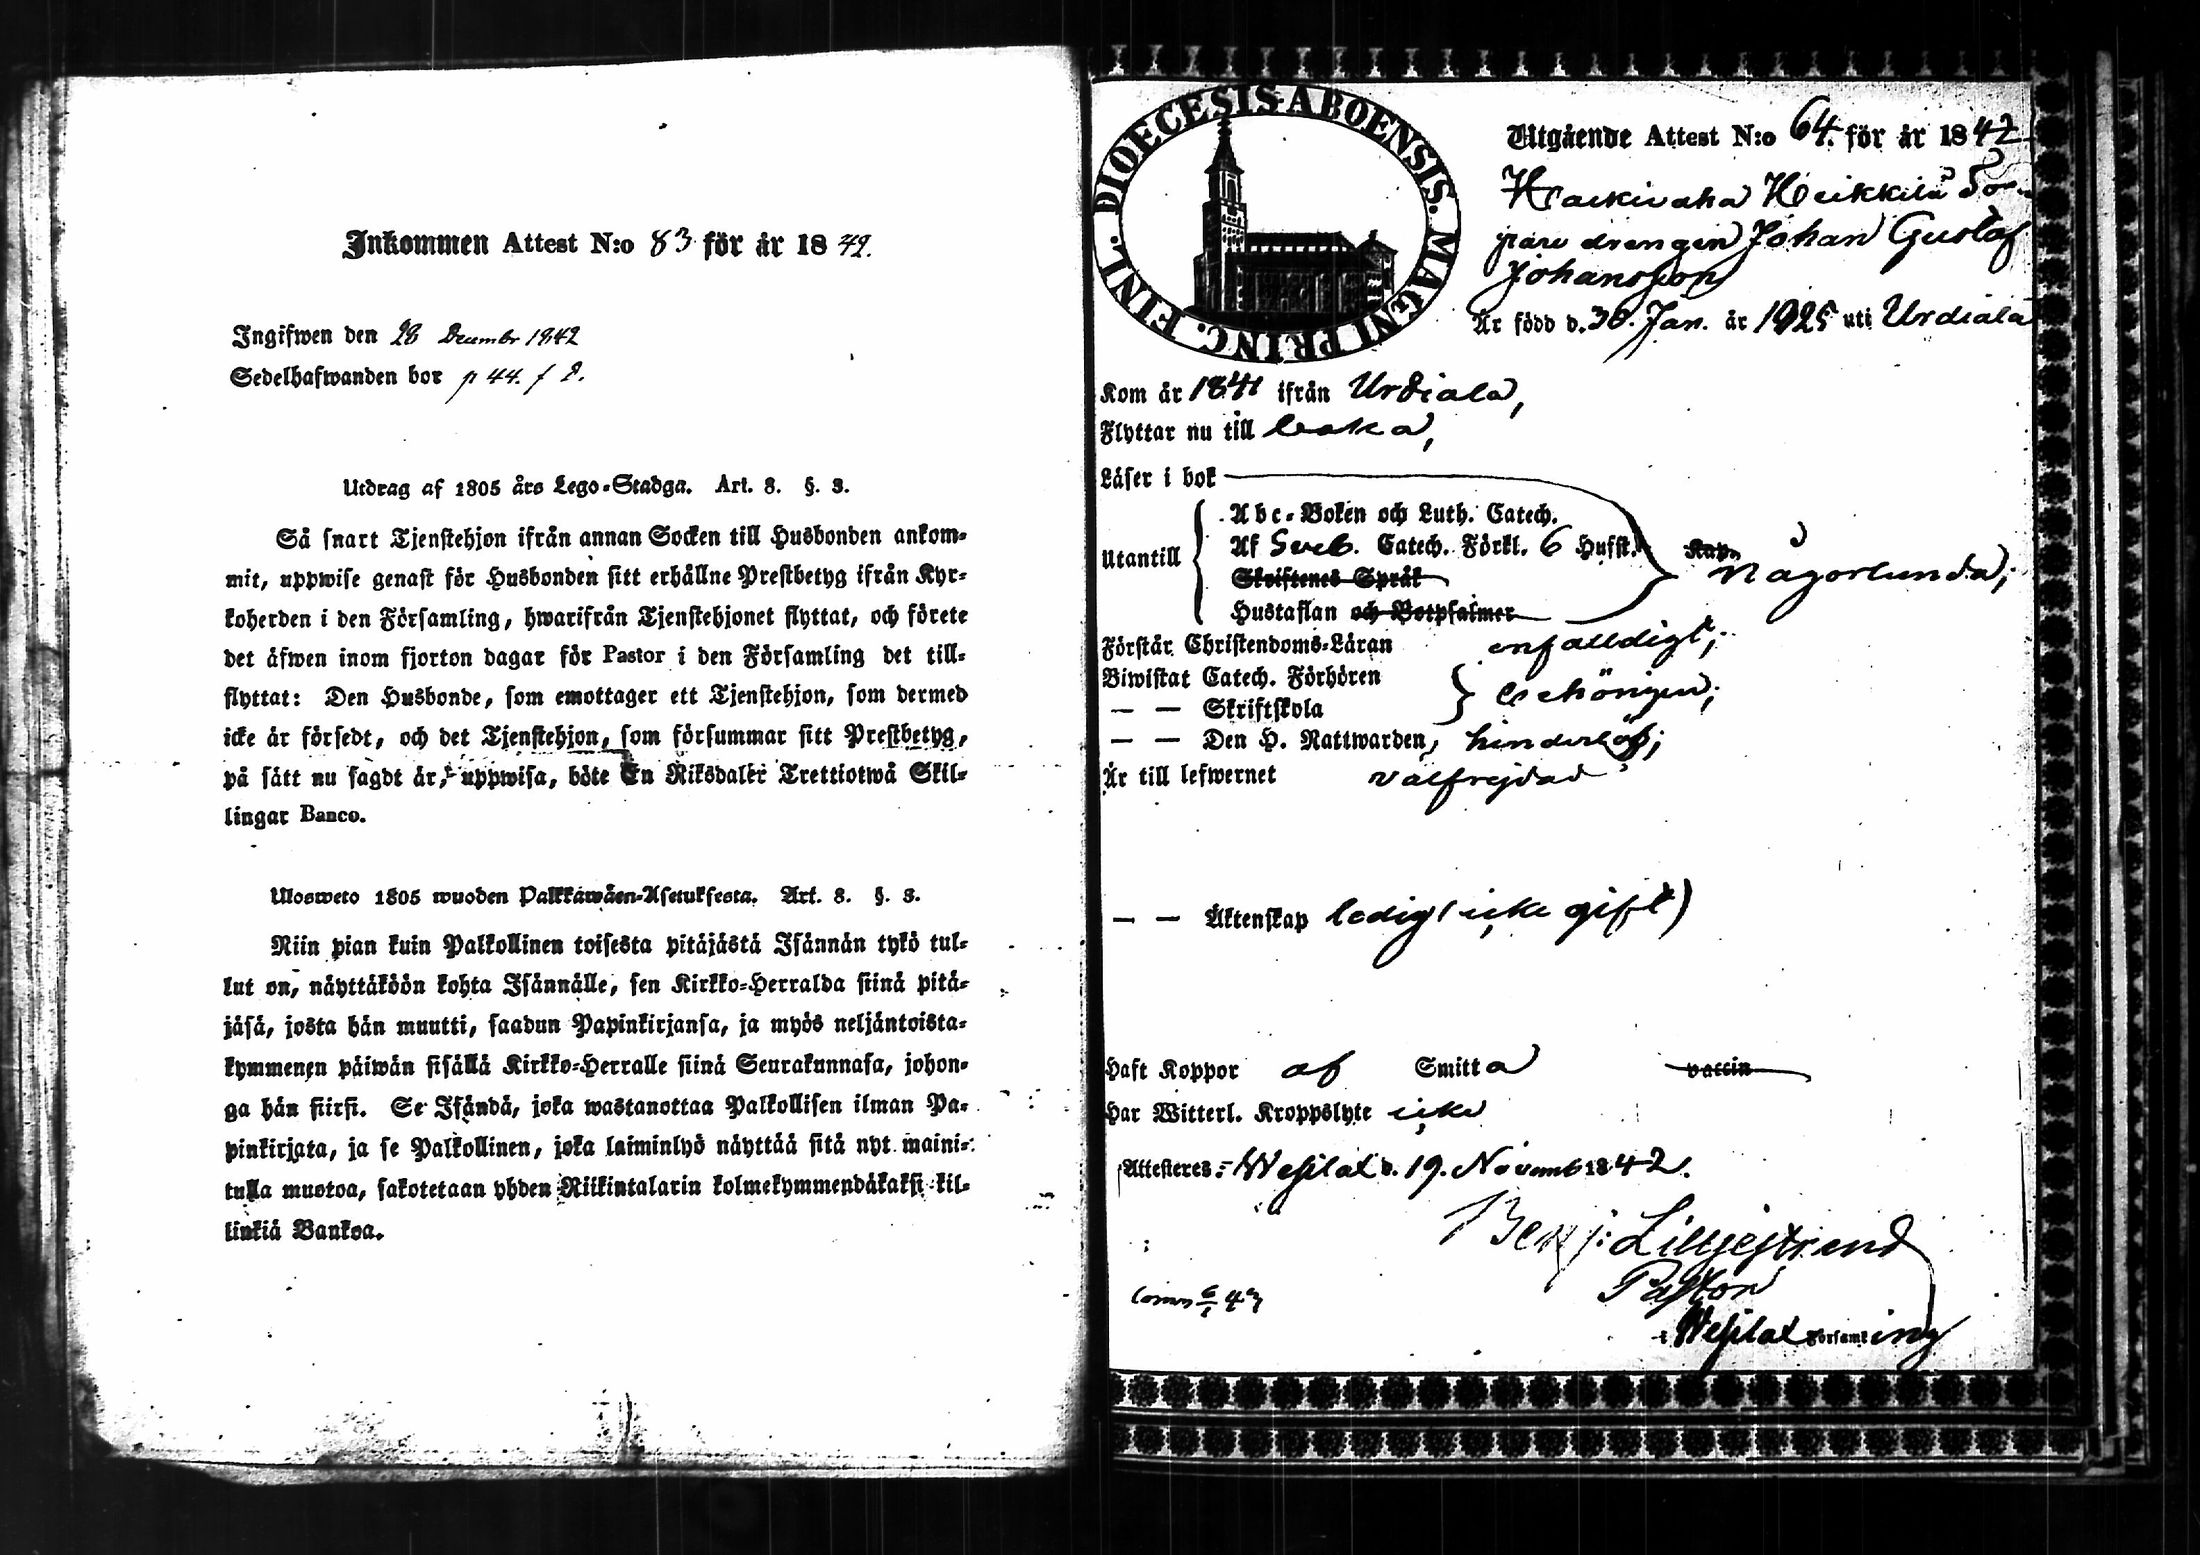 Inkommen Attest N:o 83 för år 1842.
Ingifwen den 28 Decembr 1842
Sedelhafwanden bor p 44. f 8.
Utdrag af 1805 års Lego-Stadga. Art. 8. §. 3.
Så snart Tjenstehjon ifrån annan Socken till Husbonden ankom-
mit, uppwise genast för Husbonden sitt erhållne Prestbetyg ifrån Kyr-
koherden i den Församling, hwarifrån Tjenstehjonet flyttat, och förete
det äfwen inom fjorton dagar för Pastor i den Församling det till-
flyttat: Den Husbonde, som emottager ett Tjenstehjon, som dermed
icke är försedt, och det Tjenstehjon, som försummar sitt Prestbetyg,
på sätt nu sagdt är, uppwisa, böte En Riksdaler Trettiotwå Skil-
lingar Banco.
Ulosweto 1805 wuoden Palkkawäen-Asetuksesta. Art. 8. §. 3.
Niin pian kuin Palkollinen toisesta pitäjästä Isännän tykö tul-
lut on, näyttäköön kohta Isännälle, sen Kirkko-Herralda siinä pitä-
jäsä, josta hän muutti, saadun Papinkirjansa, ja myös neljäntoista-
kymmenen päiwän sisällä Kirkko-Herralle siinä Seurakunnasa, johon-
ga hän siirsi. Se Isändä, joka wastanottaa Palkollisen ilman Pa-
pinkirjata, ja se Palkollinen, joka laiminlyö näyttää sitä nyt maini-
tulla muotoa, sakotetaan yhden Riikintalarin kolmekymmendäkaksi kil-
linkiä Bankoa.
DIOECESIS ABOENSIS. MAGNI PRINC. FINL.
Utgående Attest N:o 64. för år 1842
Heikkilä Tor-
pare drengen Johan Gustaf
Johansson
Är född d. 30. Jan. år 1825 uti Urdiala
Kom år 1841 ifrån Urdiala,
Flyttar nu till
Läser i bok
Abc-Boken och Luth. Catech.
Utantill Af Sveb. Catech. Förkl. 6 Hufst. någorlunda;
Skriftenes Språk
Hustaflan och Botpsalmer
Förstår Christendoms-Läran enfalldigt;
Biwistat Catech. Förhören
— — Skriftskola behörigen;
— — Den H. Nattwarden, hinderlös;
Är till lefwernet välfrejdad
— — Äktenskap ledig (icke gift)
Haft Koppor af Smitta vaccin
Har Witterl. Kroppslyte icke
Attesteres: Wesilax d. 19. Novemb 1842.
Benj: Lilljestrand
Pastor
i Wesilax Församling